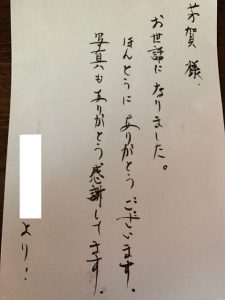 芳賀様.
お世話になりました。
ほんとうにありがとうございます。
写真もありがとう感謝してます。
より!